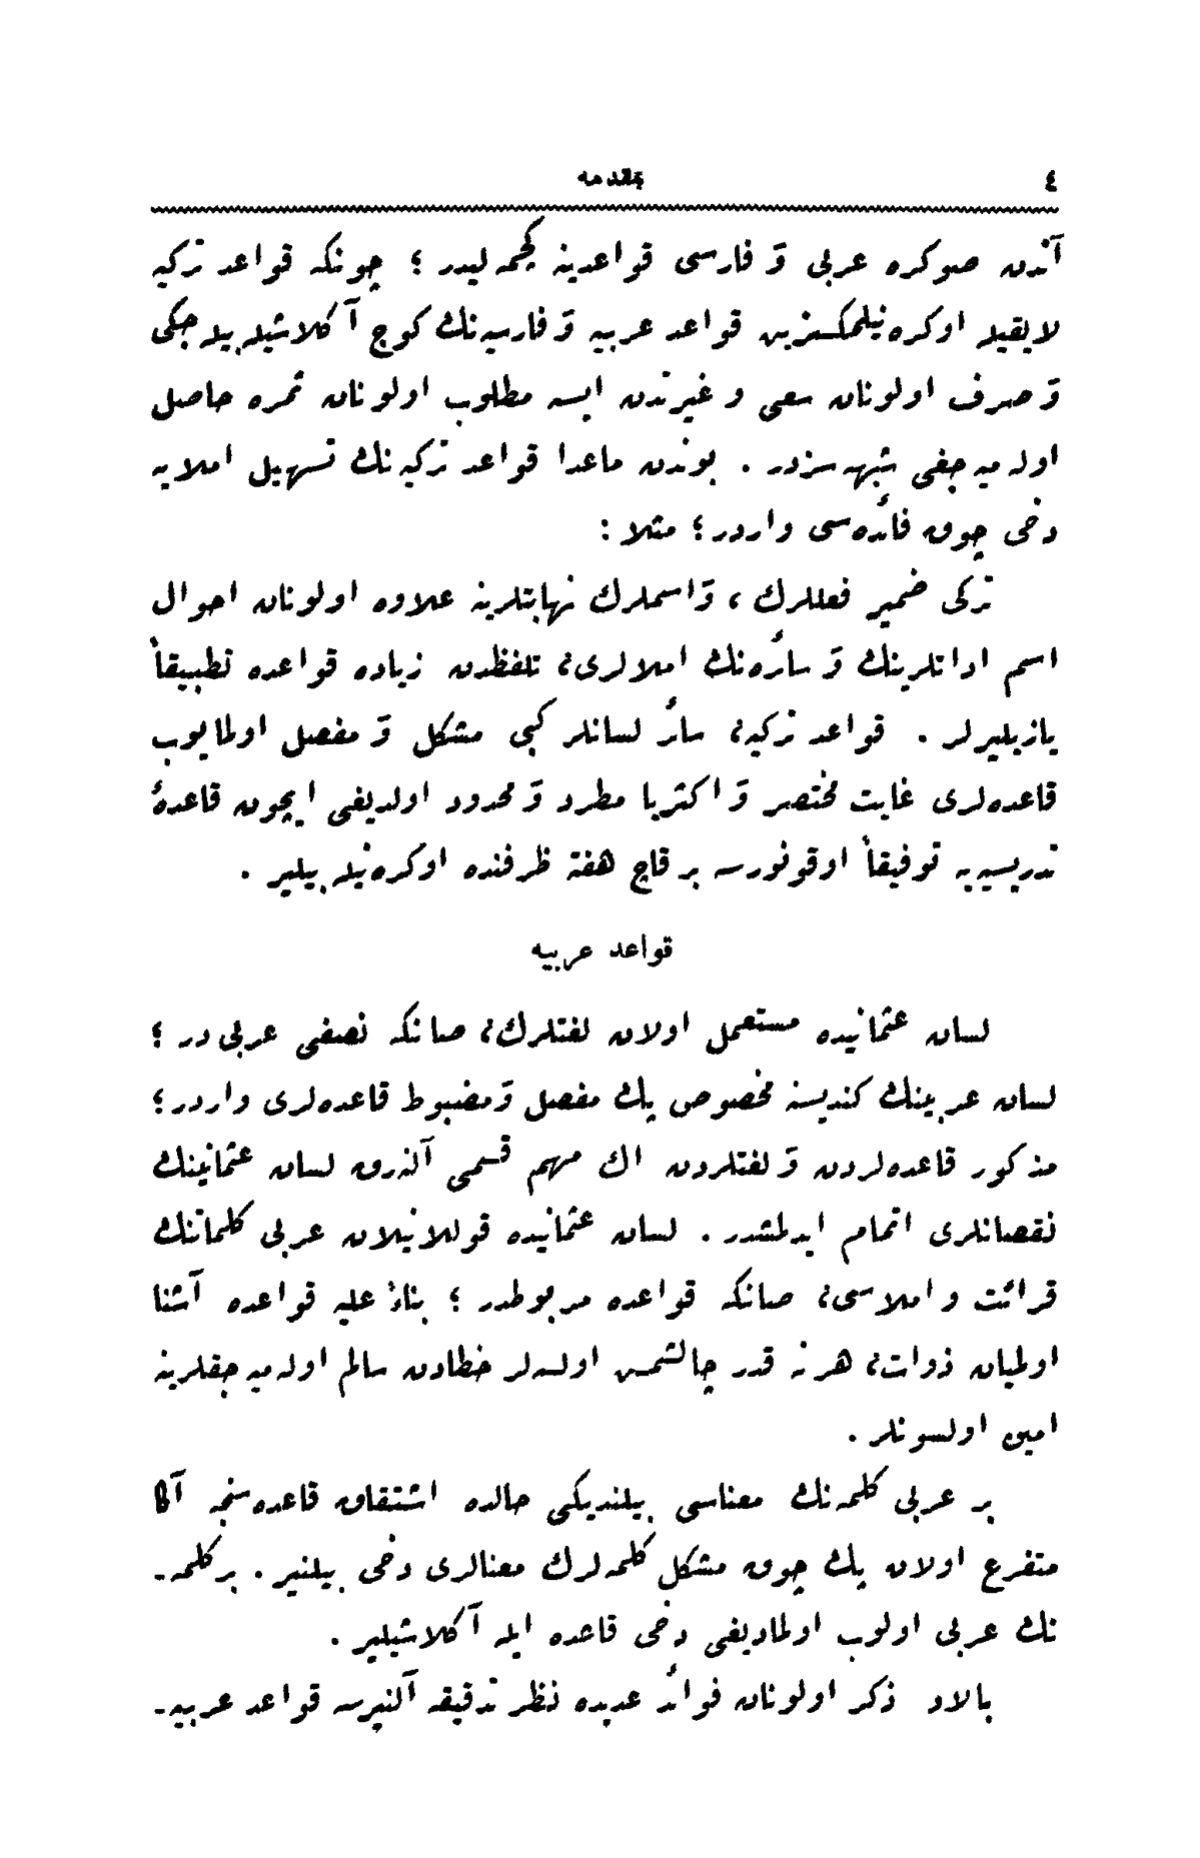 ٤ مقدمه
آندن صوكره عربی و فارسی قواعدینه كچمه‌لیدر ؛ چونكه قواعد تركیه
لایقیله اوكره‌نیلمكسزین قواعد عربیه و فارسیه‌نك كوج آكلاشیله‌بیله‌جكی
و صرف اولونان سعی و غیرتدن ایسه مطلوب اولونان ثمره حاصل
اوله‌میه‌جغی شبهه‌سزدر . بوندن ماعدا قواعد تركیه‌نك تسهیل املایه
دخی چوق فائده‌سی واردر ؛ مثلا :
تركی ضمیر فعللرك ، و اسملرك نهایتلرینه علاوه اولونان احوال
اسم اداتلرینك و سائره‌نك املالری، تلفظدن زیاده قواعده تطبیقاً
یازیلیرلر . قواعد تركیه، سائر لسانلر كبی مشكل و مفصل اولمایوب
قاعده‌لری غایت مختصر و اكثریا مطرد و محدود اولدیغی ایچون قاعدهٔ
تدریسیه‌یه توفیقاً اوقونورسه بر قاچ هفته ظرفنده اوكره‌نیله‌بیلیر .
قواعد عربیه
لسان عثمانیده مستعمل اولان لغتلرك، صانكه نصفی عربی‌در ؛
لسان عربینك كندیسنه مخصوص پك مفصل و مضبوط قاعده‌لری واردر ؛
مذكور قاعده‌لردن و لغتلردن اك مهم قسمی آلنه‌رق لسان عثمانینك
نقصانلری اتمام ایدلمشدر . لسان عثمانیده قوللانیلان عربی كلماتنك
قرائت و املاسی، صانكه قواعده مربوطدر ؛ بناءً علیه قواعده آشنا
اولمیان ذوات، هر نه قدر چالشمش اولسه‌لر خطادن سالم اوله‌میه‌جقلرینه
امین اولسونلر .
بر عربی كلمه‌نك معناسی بیلندیكی حالده اشتقاق قاعده‌سنجه آكا
متفرع اولان پك چوق مشكل كلمه‌لرك معنالری دخی بیلنیر . بر كلمه-
نك عربی اولوب اولمادیغی دخی قاعده ایله آكلاشیلیر .
بالاده ذكر اولونان فوائد عدیده نظر تدقیقه آلنیرسه قواعد عربیه-